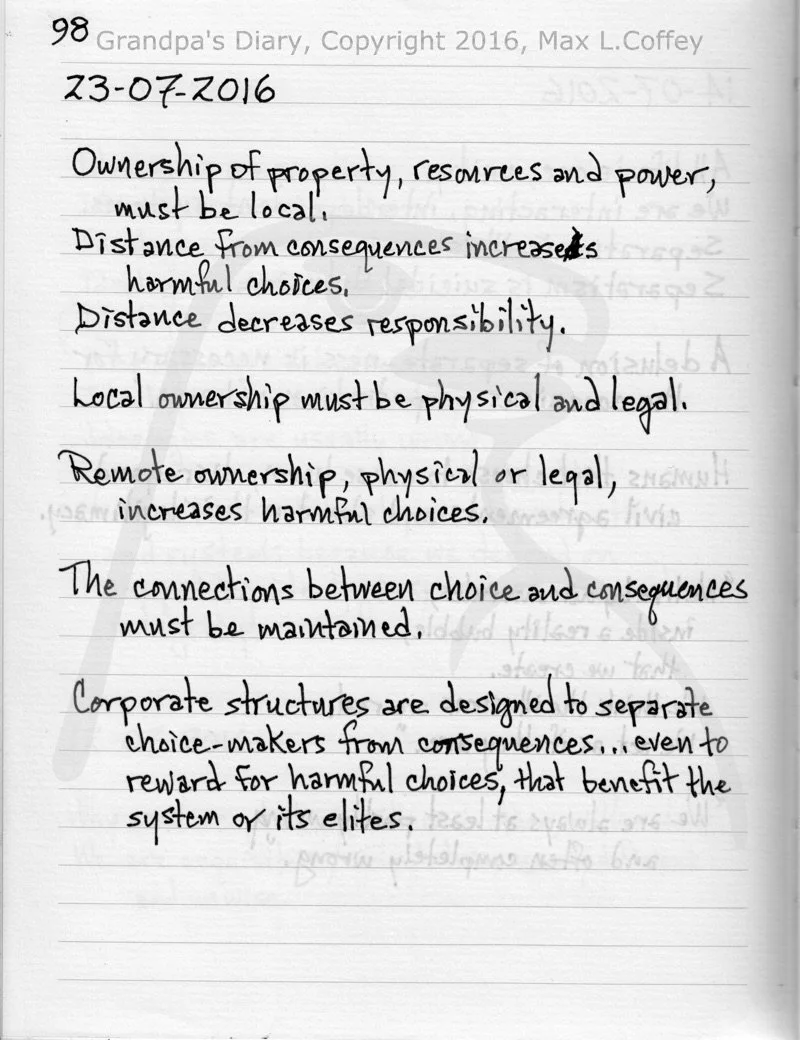 98 Grandpa's Diary, Copyright 2016, Max L.Coffey
23-07-2016
Ownership of property, resources and power,
must be local.
Distance from consequences increases
harmful choices.
Distance decreases responsibility.
Local ownership must be physical and legal.
Remote ownership, physical or legal,
increases harmful choices.
The connections between choice and consequences
must be maintained.
Corporate structures are designed to separate
choice-makers from consequences...even to
reward for harmful choices, that benefit the
system or its elites.